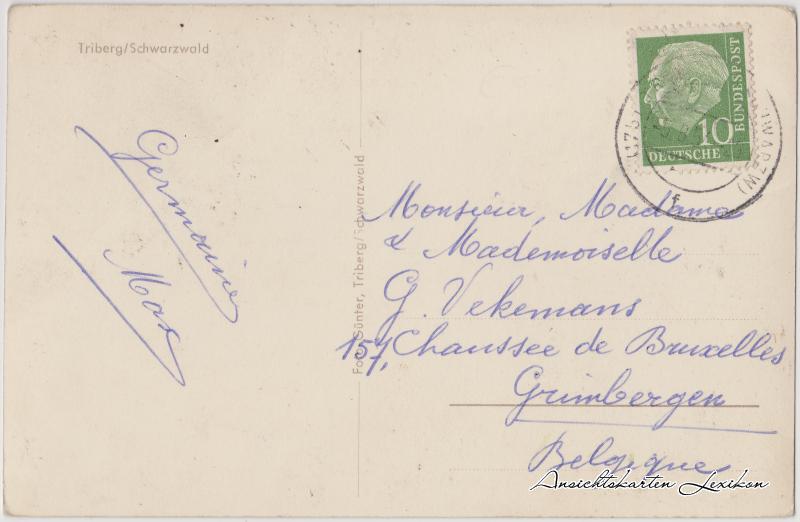 Triberg/Schwarzwald
Germaine
Max
Foto Günter, Triberg/Schwarzwald
10
DEUTSCHE BUNDESPOST
Monsieur, Madame
& Mademoiselle
G. Vekemans
157, Chaussée de Bruxelles
Grimbergen
Belgique
Ansichtskarten Lexikon